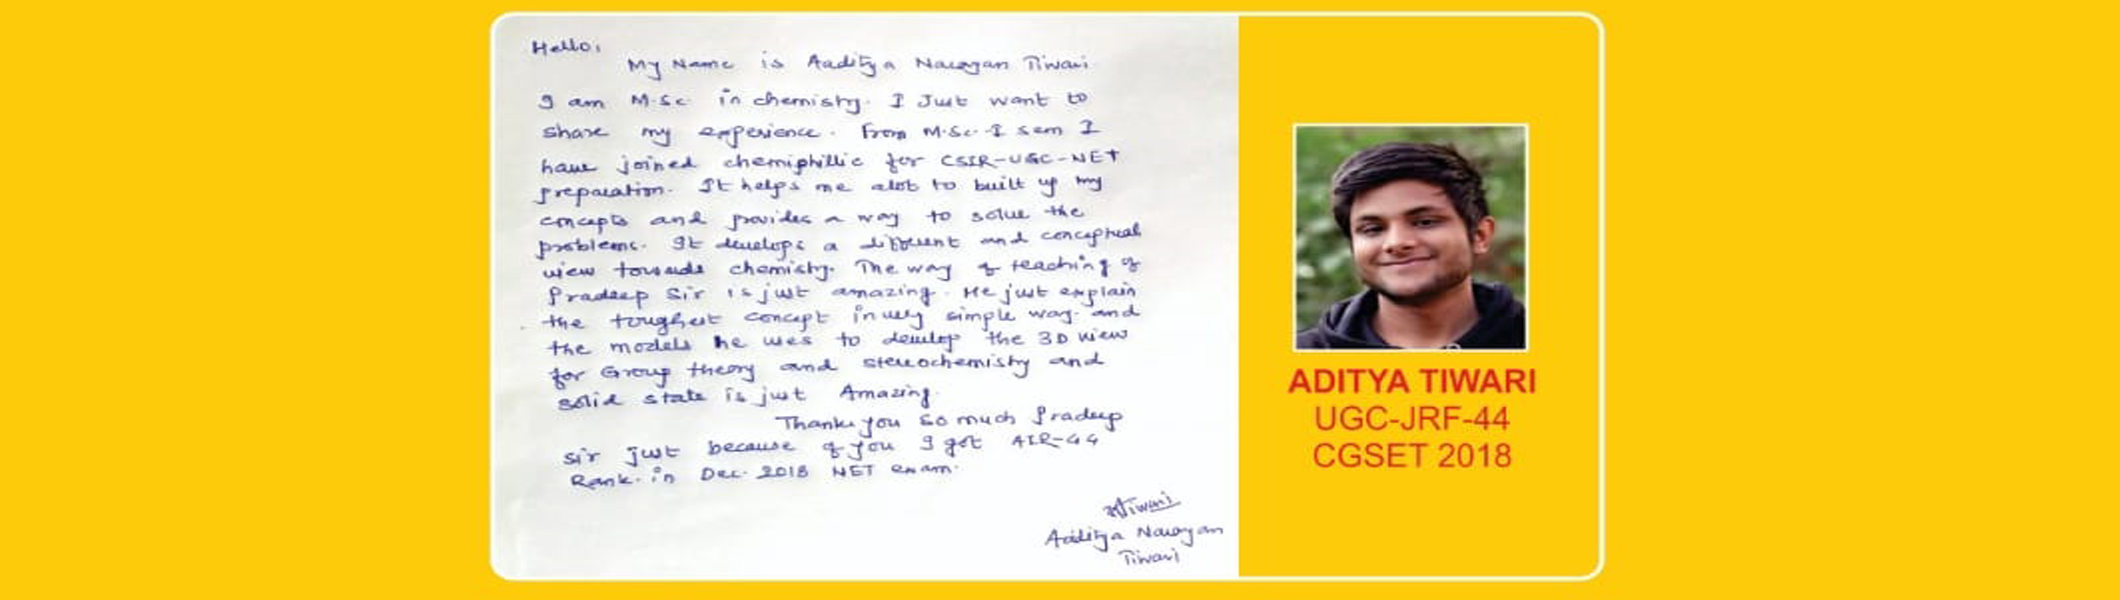 Hello,
My Name is Aaditya Narayan Tiwari.
I am M.Sc. in chemistry. I Just want to
share my experience. From M.Sc.-I sem I
have joined chemiphillic for CSIR-UGC-NET
preparation. It helps me alot to built up my
concepts and provides a way to solve the
problems. It develops a different and conceptual
view towards chemistry. The way of teaching of
Pradeep Sir is just amazing. He just explain
the toughest concept in very simple way. and
the models he uses to develop the 3D view
for Group theory and stereochemistry and
solid state is just Amazing.
Thank you so much Pradeep
sir just because of you I got AIR-44
Rank. in Dec. 2018 NET exam.
Tiwari
Aaditya Narayan
Tiwari
ADITYA TIWARI
UGC-JRF-44
CGSET 2018